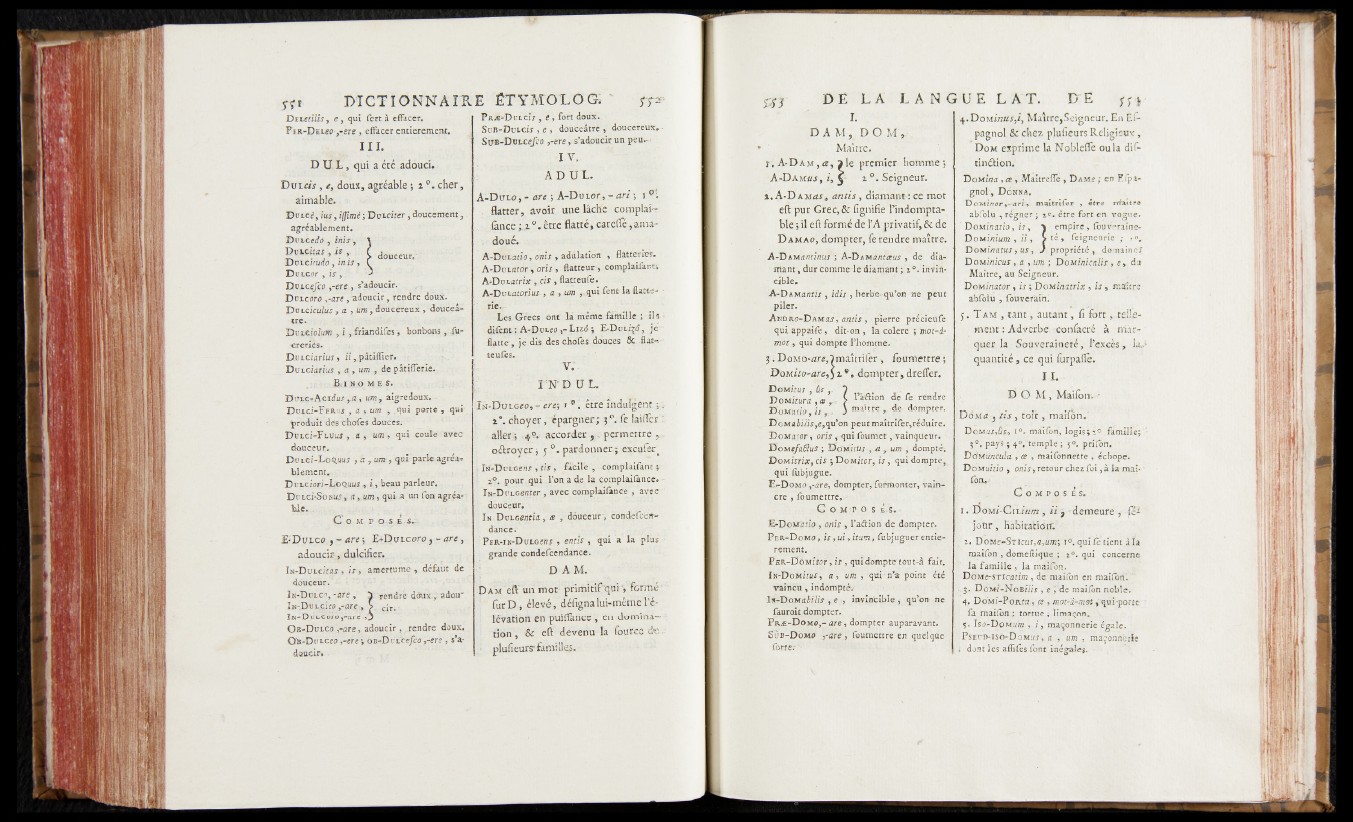 551 DICTIONNAIRE ÉTYMOLOG. 552
DELetilis, e, qui ſert à effacer.
PER-DELeo,-ere, effacer entierement.
III.
DUL, qui a été adouci.
DULcis, e, doux, agréable; 2°. cher,
aimable.
DULCè, ius, iſſimé; DULciter, doucement,
agréablement.
DULcedo, inis,
DULcitas, is,
DULcitudo, inis,
DULcor, is,
} douceur.
DULceſco,-ere, s'adoucir.
DULcoro,-are, adoucir, rendre doux.
DULciculus, a, um, doucereux, douceâ-
tre.
DULciolum, i, friandiſes, bonbons, ſu-
creries.
DULciarius, ii, pâtiſſier.
DULciarius, a, um, de pâtiſſerie.
BINOMES.
DULC-ACidus, a, um, aigredoux.
DULCi-FERus, a, um, qui porte, qui
produit des choſes douces.
DULCi-FLUus, a, um, qui coule avec
douceur.
DULCi-LOQUus, a, um, qui parle agréa-
blement.
DULCiori-LOQUus, i, beau parleur.
DULCi-SONus, a, um, qui a un ſon agréa-
ble.
COMPOSÉS.
E-DULCO, - are; E-DULCoro, - are,
adoucir, dulcifier.
IN-DULcitas, is, amertume, défaut de
douceur.
IN-DULCO,-are,
IN-DULCito,-are,
IN-DULCoro,-are,
} rendre doux, adou-
cir.
OB-DULCO,-are, adoucir, rendre doux.
OB-DULCeo,-ere; OB-DULCeſco,-ere, s'a-
doucir.
PRÆ-DULcis, e, fort doux.
SUB-DULcis, e, douceâtre, doucereux.
SUB-DULceſco,-ere, s'adoucir un peu.
IV.
ADUL.
A-DULO, - are; A-DULor, - ari; 1°.
flatter, avoir une lâche complai-
ſance; 2°. être flatté, careſſé, ama-
doué.
A-DULatio, onis, adulation, flatteries.
A-DULator, oris, flatteur, complaiſant.
A-DULatrix, cis, flatteuſe.
A-DULatorius, a, um, qui ſent la flatte-
rie.
Les Grecs ont la même famille; ils
diſent: A-DULeo,-LIZó; E-DULizó, je
flatte, je dis des choſes douces & flat-
teuſes.
V.
INDUL.
IN-DULGeo,- ere; 1°. être indulgent;
2°. choyer, épargner; 3°. ſe laiſſer
aller; 4°. accorder, permettre,
octroyer, 5°. pardonner; excuſer.
IN-DULGens, tis, facile, complaiſant;
2°. pour qui l'on a de la complaiſance.
IN-DULGenter, avec complaiſance, avec
douceur.
IN DULGentia, æ, douceur, condeſcen-
dance.
PER-IN-DULGens, entis, qui a la plus
grande condeſcendance.
DAM.
DAM eſt un mot primitif qui, formé
ſur D, élevé, déſigna lui-même l'é-
lévation en puiſſance, en domina-
tion, & eſt devenu la ſource de
pluſieurs familles.
553 DE LA LANGUE LAT. DE 554
I.
DAM, DOM,
Maître.
1. A-DAM, æ,
A-DAMus, i,
} le premier homme;
2°. Seigneur.
2. A-DAMas, antis, diamant: ce mot
eſt pur Grec, & ſignifie l'indompta-
ble; il eſt formé de l'A privatif, & de
DAMAO, dompter, ſe rendre maître.
A-DAMantinus; A-DAMantæus, de dia-
mant, dur comme le diamant; 2°. invin-
cible.
A-DAMantis, idis, herbe qu'on ne peut
piler.
ANDRO-DAMAS, antis, pierre précieuſe
qui appaiſe, dit-on, la colere; mot-à-
mot, qui dompte l'homme.
3. DOMO-are,
DOMito-are,
} maîtriſer, ſoumettre;
2°. dompter, dreſſer.
DOMitus, ûs,
DOMitura, æ,
DOMatio, is,
} l'action de ſe rendre
maître, de dompter.
DOMabilis,e, qu'on peut maîtriſer, réduire.
DOMator, oris, qui ſoumet, vainqueur.
DOMefactus; DOMitus, a, um, dompté.
DOMitrix, cis; DOMitor, is, qui dompte,
qui ſubjugue.
E-DOMO,-are, dompter, ſurmonter, vain-
cre, ſoumettre.
COMPOSÉS.
E-DOMatio, onis, l'action de dompter.
PER-DOMO, is, ui, itum, ſubjuguer entie-
rement.
PER-DOMitor, is, qui dompte tout-à fait.
IN-DOMitus, a, um, qui n'a point été
vaincu, indompté.
IN-DOMabilis, e, invincible, qu'on ne
ſauroit dompter.
PRÆ-DOMO,- are, dompter auparavant.
SUB-DOMO,-are, ſoumettre en quelque
ſorte.
4. DOMinus,i, Maître, Seigneur. En Eſ-
pagnol & chez pluſieurs Religieux,
DOM exprime la Nobleſſe ou la diſ-
tinction.
DOMina, æ, Maîtreſſe, DAME; en Eſpa-
gnol, DONNA.
DOMinor,-ari, maîtriſer, être maître
abſolu, régner; 2°. être fort en vogue.
DOMinatio, is,
DOMinium, ii,
DOMinatus, us,
} empire, ſouveraine-
té, ſeigneurie; 2°.
propriété, domaines
DOMinicus, a, um; DOMinicalis, e, du
Maître, au Seigneur.
DOMinator, is; DOMinatrix, is, maître
abſolu, ſouverain.
5. TAM, tant, autant, ſi fort, telle-
ment: Adverbe conſacré à mar-
quer la Souveraineté, l'excès, la
quantité, ce qui ſurpaſſe.
II.
DOM, Maiſon.
DOMA, tis, toît, maiſon.
DOMus,ûs, 1°. maiſon, logis; 2° famille;
3°. pays; 4°. temple; 5°. priſon.
DOMuncula, æ, maiſonnette, échope.
DOMuitio, onis, retour chez ſoi, à la mai-
ſon.
COMPOSÉS.
1. DOMI-CILium, ii, demeure, ſé-
jour, habitation.
2. DOME-STIcus,a,um; 1°. qui ſe tient à la
maiſon, domeſtique; 2°. qui concerne
la famille, la maiſon.
DOME-STIcatim, de maiſon en maiſon.
3. DOMI-NOBilis, e, de maiſon noble.
4. DOMI-PORTa, æ, mot-à-mot, qui porte
ſa maiſon; tortue, limaçon.
5. ISO-DOMum, i, maçonnerie égale.
PSEUD-ISO-DOMus, a, um, maçonnerie
dont les aſſiſes ſont inégales.